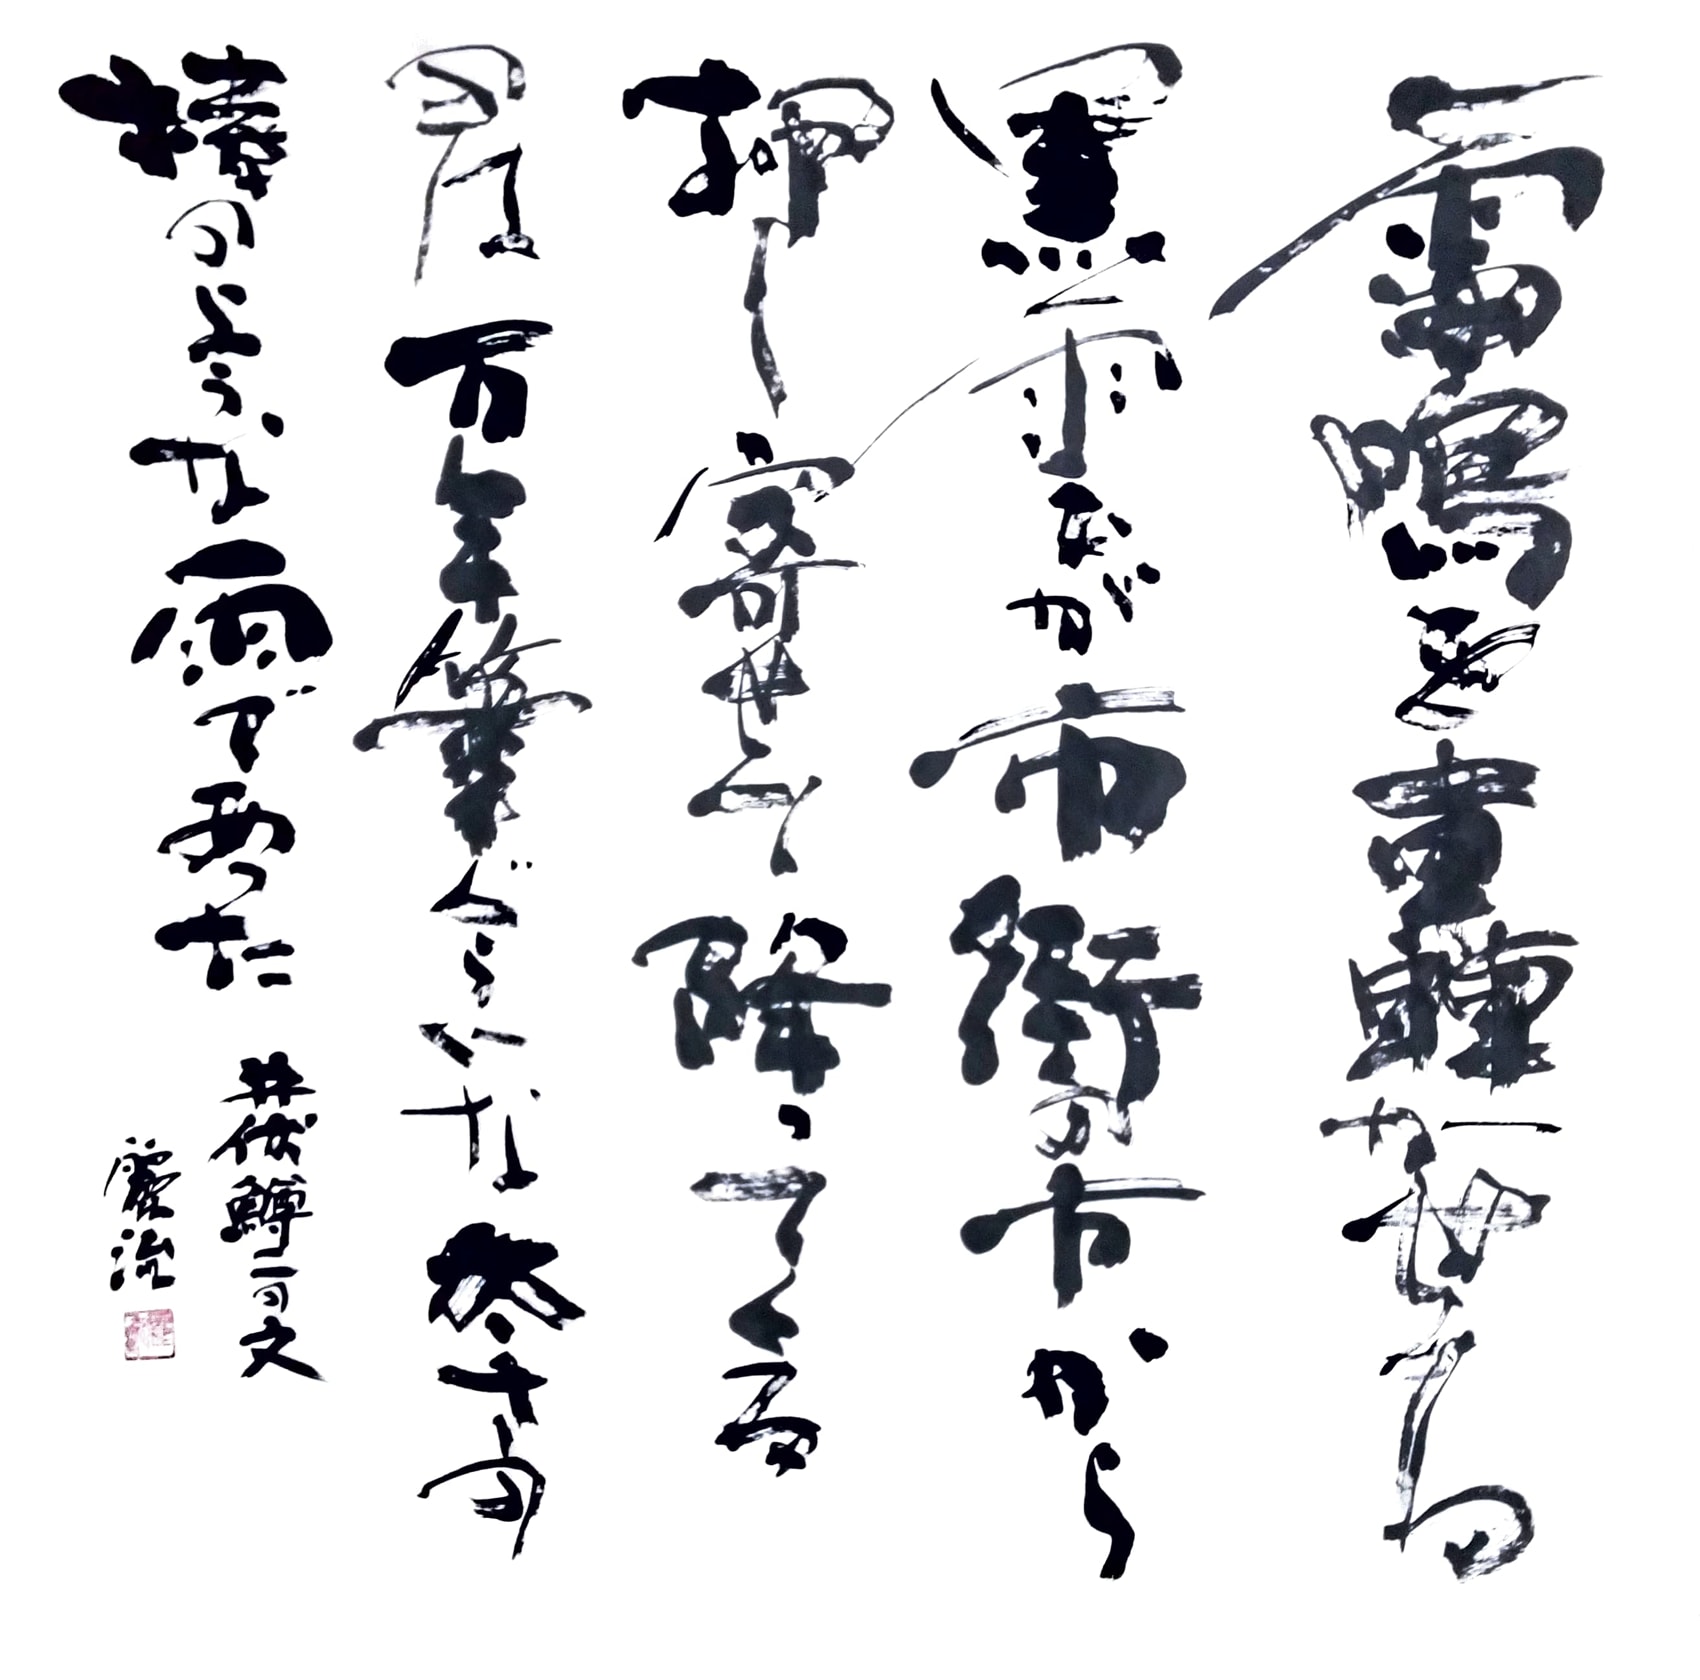 雷鳴を轟かせる
黒雲が市街の方から
押し寄せて降ってくる
のは万年筆ぐらいな太さの
棒のような雨であった
井伏鱒二の文